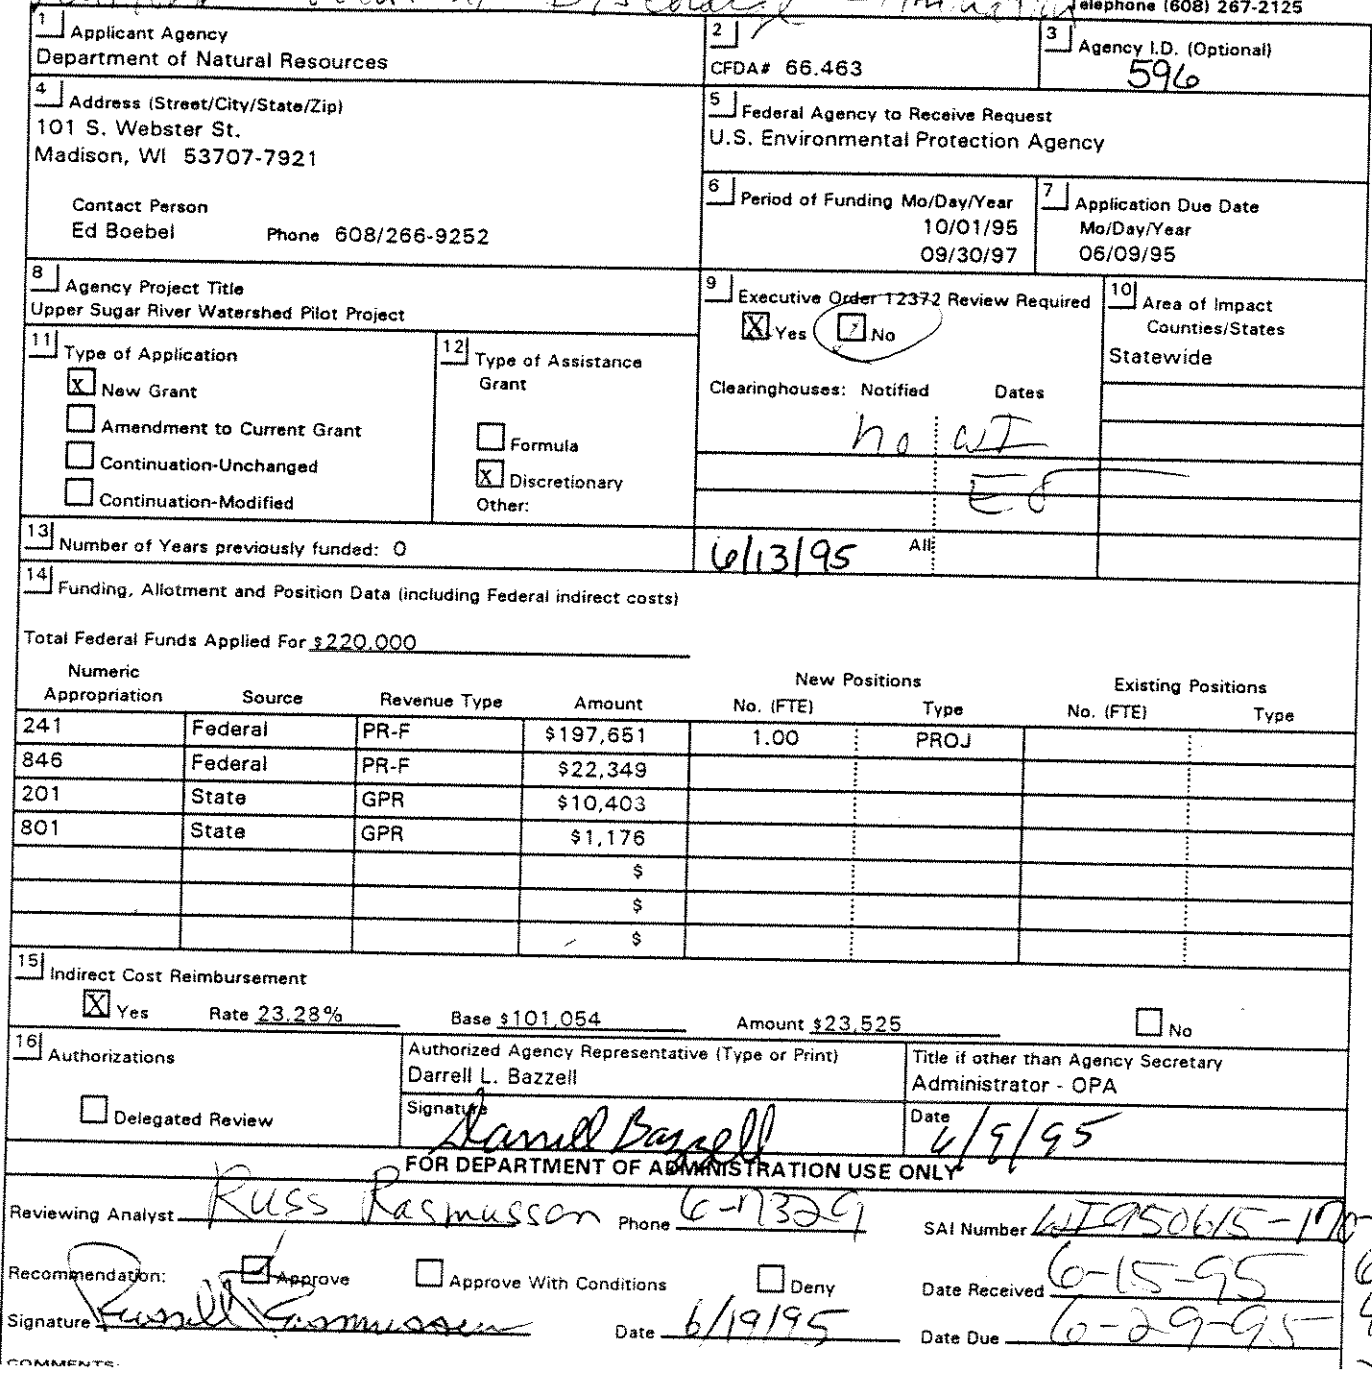 elephone (608) 267-2125
1 Applicant Agency
Department of Natural Resources
2
CFDA# 66.463
3 Agency I.D. (Optional)
596
4 Address (Street/City/State/Zip)
101 S. Webster St.
Madison, WI 53707-7921
Contact Person
Ed Boebel Phone 608/266-9252
5 Federal Agency to Receive Request
U.S. Environmental Protection Agency
6 Period of Funding Mo/Day/Year
10/01/95
09/30/97
7 Application Due Date
Mo/Day/Year
06/09/95
8 Agency Project Title
Upper Sugar River Watershed Pilot Project
9 Executive Order 12372 Review Required
X Yes No
Clearinghouses: Notified Dates
no WI
6/13/95 All
10 Area of Impact
Counties/States
Statewide
11 Type of Application
X New Grant
Amendment to Current Grant
Continuation-Unchanged
Continuation-Modified
12 Type of Assistance
Grant
Formula
X Discretionary
Other:
13 Number of Years previously funded: 0
14 Funding, Allotment and Position Data (including Federal indirect costs)
Total Federal Funds Applied For $220,000
Numeric New Positions Existing Positions
Appropriation Source Revenue Type Amount No. (FTE) Type No. (FTE) Type
241 Federal PR-F $197,651 1.00 PROJ
846 Federal PR-F $22,349
201 State GPR $10,403
801 State GPR $1,176
$
$
$
15 Indirect Cost Reimbursement
X Yes Rate 23.28% Base $101,054 Amount $23,525 No
16 Authorizations
Delegated Review
Authorized Agency Representative (Type or Print)
Darrell L. Bazzell
Title if other than Agency Secretary
Administrator - OPA
Signature Darrell Bazzell
Date 6/9/95
FOR DEPARTMENT OF ADMINISTRATION USE ONLY
Reviewing Analyst Russ Rasmussen Phone 6-7329 SAI Number WI950615-170-
Recommendation: Approve Approve With Conditions Deny Date Received 6-15-95
Signature Russell Rasmussen Date 6/19/95 Date Due 6-29-95
COMMENTS: